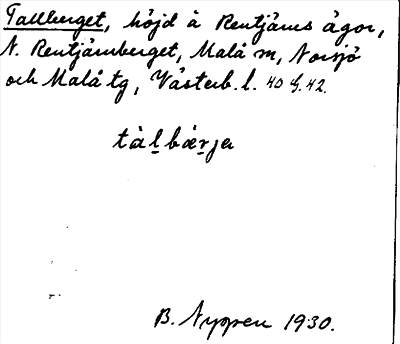 Tallberget, höjd å Rentjärns ägor,
N. Rentjärnberget, Malå m, Norsjö
och Malå tg, Västerb. l. 40 G. 42.
tàl̲bär̲ja
B. Nyppen 1930.